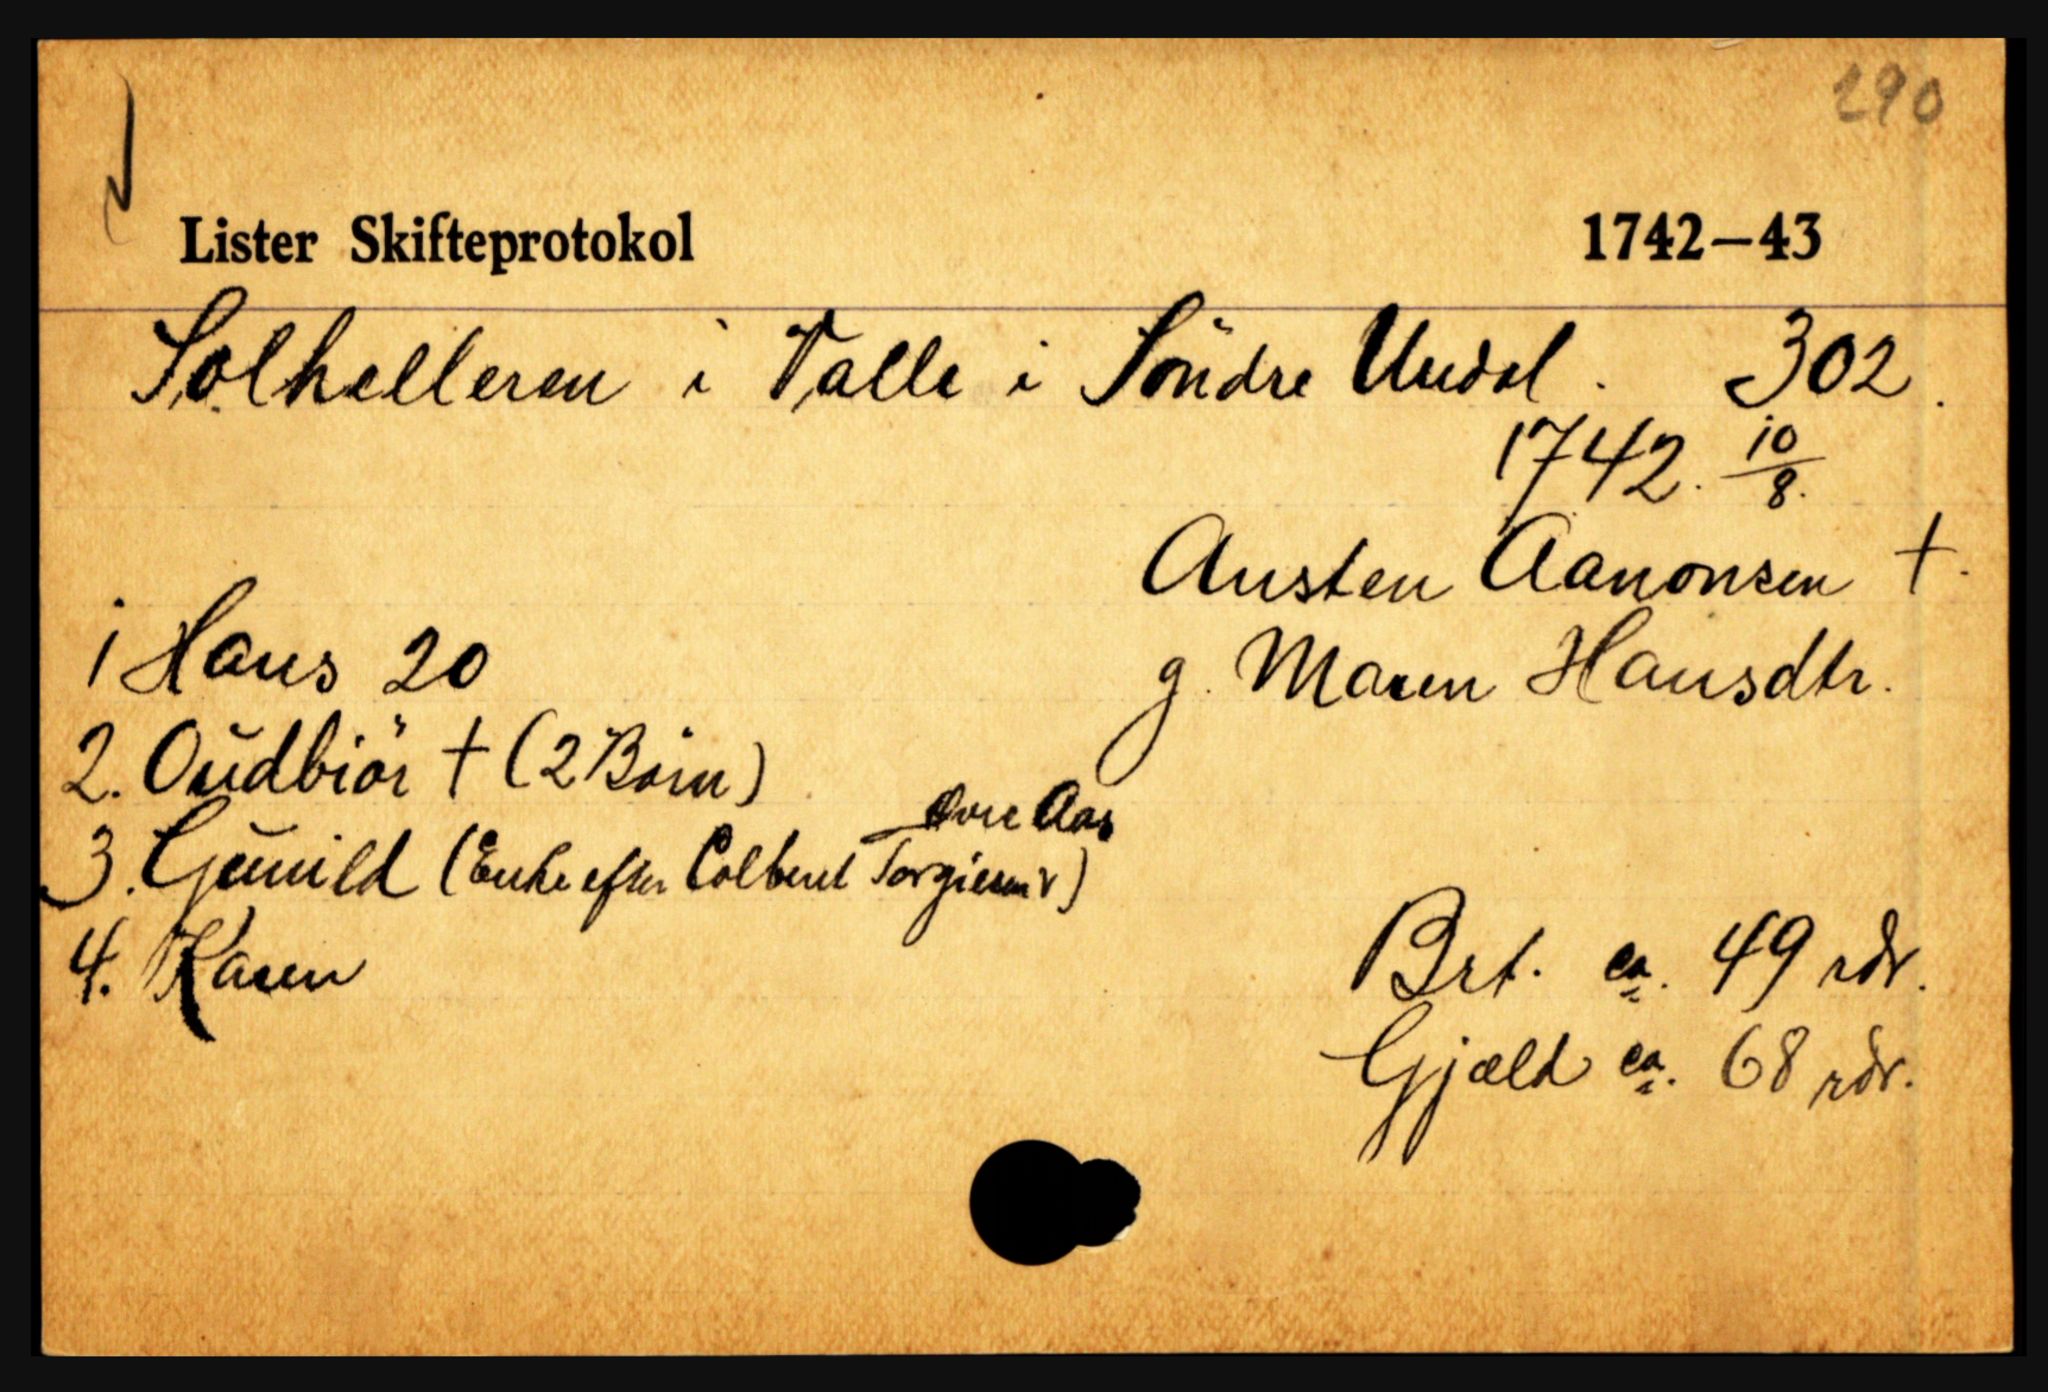 290
Lister Skifteprotokol 1742–43
Solhelleren i Valle i Söndre Undal. 302.
1742. 10/8.
Austen Aanonsen †.
1 Hans 20
g. Maren Hansdtr.
2. Gŭdbiör † (2 Börn)
Øvre Aas
3. Gŭnild (Enke efter Colbent Torgiesen)
4. Karen
Brt. ca. 49 rdr.
Gjæld ca. 68 rdr.